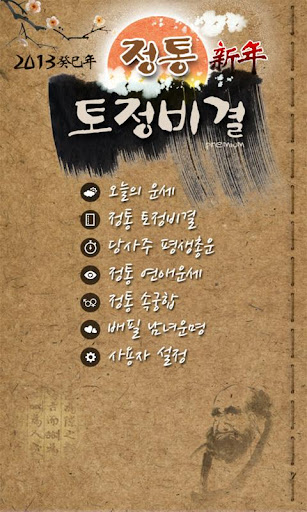 2013 癸巳年
정통
新年
토정비결
premium
오늘의 운세
정통 토정비결
당사주 평생총운
정통 연애운세
정통 속궁합
배필 남녀운명
사용자 설정